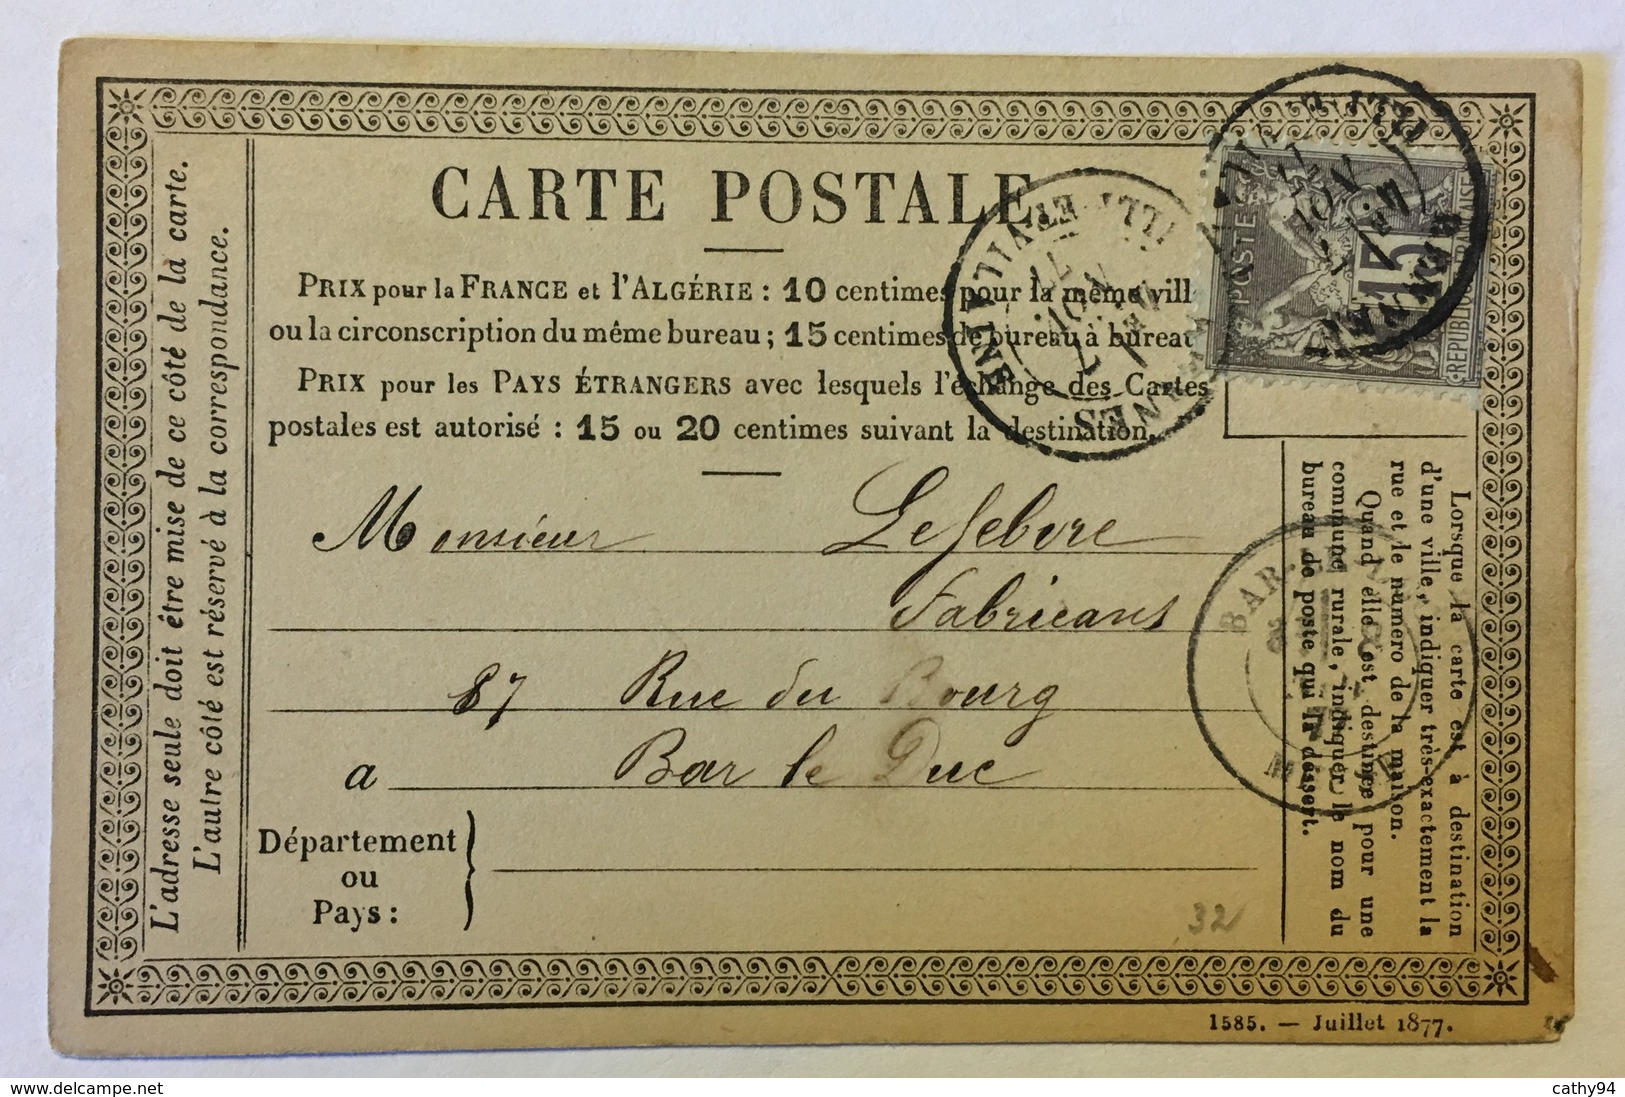 CARTE POSTALE
PRIX pour la FRANCE et l'ALGÉRIE : 10 centimes pour la même vill
ou la circonscription du même bureau ; 15 centimes de bureau à bureau
PRIX pour les PAYS ÉTRANGERS avec lesquels l'échange des Cartes
postales est autorisé : 15 ou 20 centimes suivant la destination.
Monsieur Lefebvre
Fabricant
87 Rue du Bourg
a Bar le Duc
Département
ou
Pays :
L'adresse seule doit être mise de ce côté de la carte.
L'autre côté est réservé à la correspondance.
Lorsque la carte est à destination
d'une ville, indiquer très-exactement la
rue et le numéro de la maison.
Quand elle est destinée pour une
commune rurale, indiquer le nom du
bureau de poste qui la dessert.
POSTE
15
REPUBLIQUE FRANCAISE
ILLE-ET-VILAINE
RENNES
BAR-LE-DUC
32
1585. — Juillet 1877.
cathy94